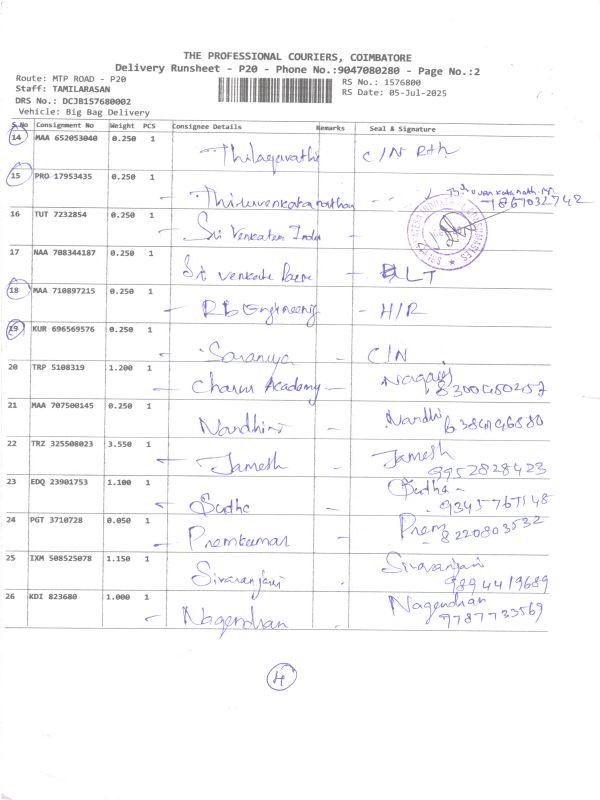 THE PROFESSIONAL COURIERS, COIMBATORE
Delivery Runsheet - P20 - Phone No.:9047080280 - Page No.:2
Route: MTP ROAD - P20
RS No.: 1576800
Staff: TAMILARASAN
RS Date: 05-Jul-2025
DRS No.: DCJB157680002
Vehicle: Big Bag Delivery
S.No Consignment No Weight PCS Consignee Details Remarks Seal & Signature
14 MAA 652053040 0.250 1
Thilagavathi C/N
15 PRO 17953435 0.250 1
Thiruvenkatanathan
16 TUT 7232854 0.250 1
Sri Venkatesa
17 NAA 708344187 0.250 1
Sri Venkate - LT
18 MAA 710897215 0.250 1
- RB Engineering - H/R
19 KUR 696569576 0.250 1
- Saranya - C/N
20 TRP 5108319 1.200 1
- Charus Academy - Nagaraj
21 MAA 707500145 0.250 1
Nandhini - Nandhi
22 TRZ 325508023 3.550 1
- Jamesh - Jamesh
9952828423
23 EDQ 23901753 1.100 1
- Sudha - Sudha -
24 PGT 3710728 0.050 1
- Premkumar - Prem
8220803532
25 IXM 508525078 1.150 1
Sivaranjani - Sivaranjani
9894419689
26 KDI 823680 1.000 1
- Nagendhan - Nagendhan
9787733569
4